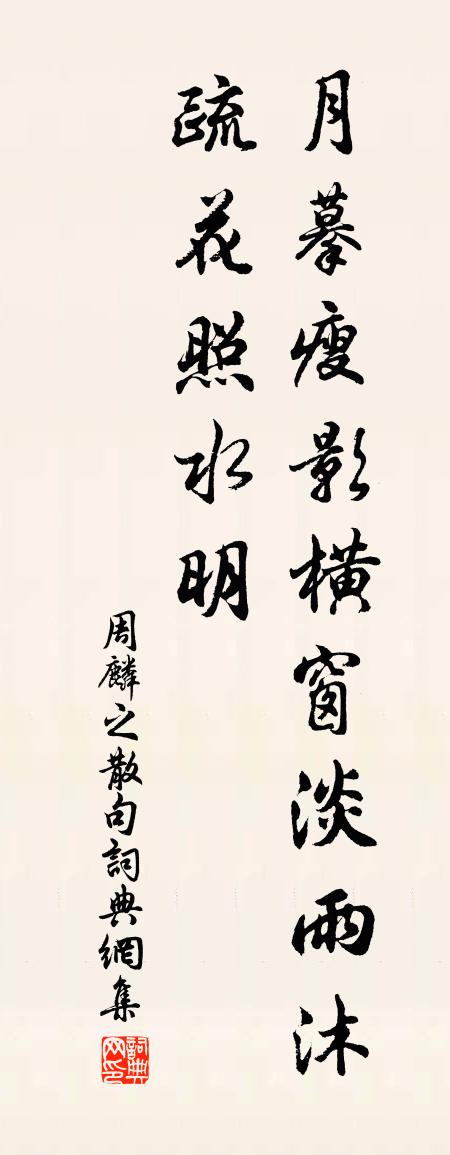 月摹瘦影橫窗淡雨沐
疏花照水明
周麟之散句詞典網集
詞典网印